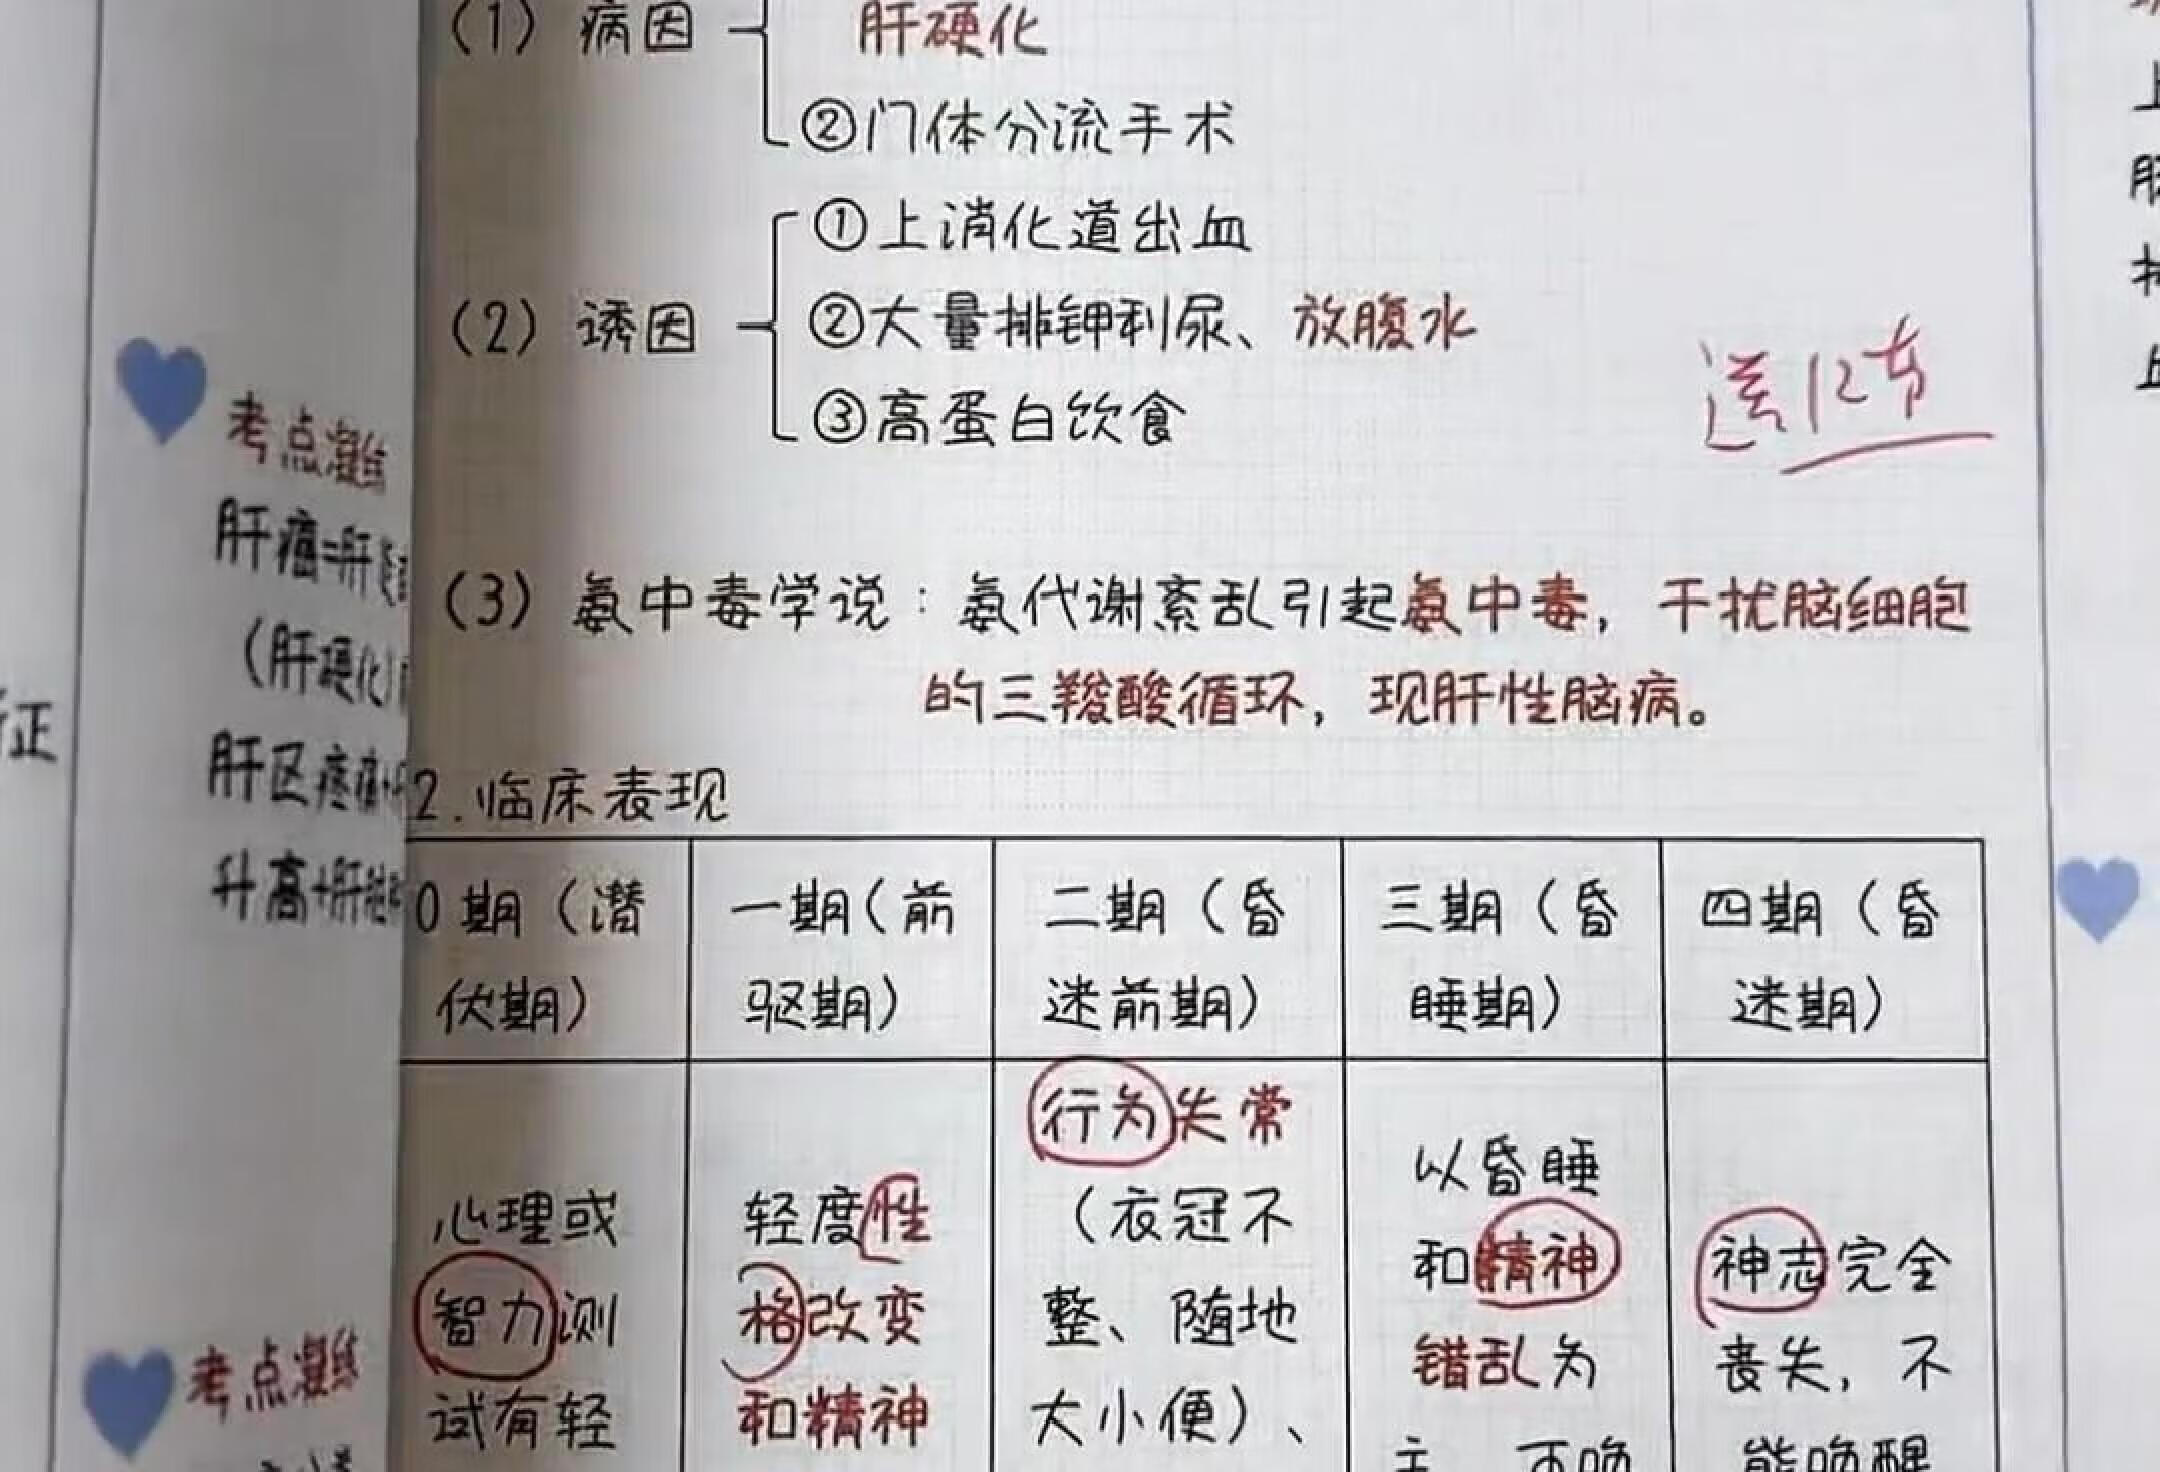 （1）病因
肝硬化
②门体分流手术
（2）诱因
①上消化道出血
②大量排钾利尿、放腹水
③高蛋白饮食
（3）氨中毒学说：氨代谢紊乱引起氨中毒，干扰脑细胞
的三羧酸循环，现肝性脑病。
2.临床表现
0期（潜
伏期）
一期（前
驱期）
二期（昏
迷前期）
三期（昏
睡期）
四期（昏
迷期）
心理或
智力测
试有轻
轻度性
格改变
和精神
行为失常
（衣冠不
整、随地
大小便）、
以昏睡
和精神
错乱为
神志完全
丧失，不
能唤醒
考点凝练
肝癌=肝
（肝硬化
肝区疼痛+
升高+肝
考点凝练
正